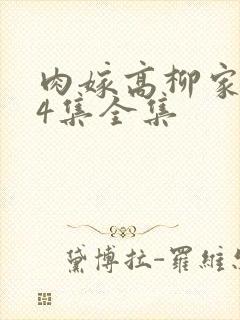 肉嫁高柳家
4集全集
黛博拉-羅維